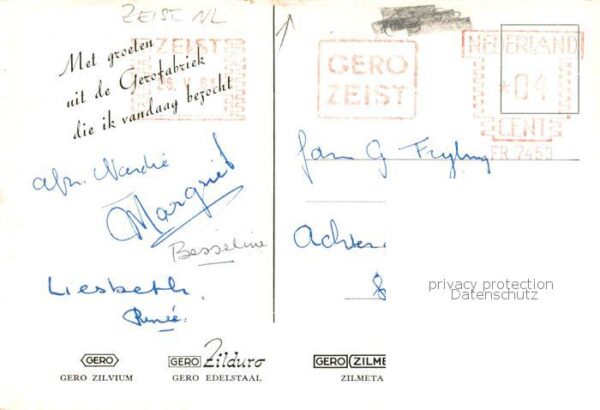 ZEIST NL
Met groeten
uit de Gerofabriek
die ik vandaag bezocht
ZEIST
GERO
ZEIST
NEDERLAND
*04
CENT
FR. 7453
Margriet
Besseline
Liesbeth
Renée
Jan G
privacy protection
Datenschutz
GERO
GERO ZILVIUM
GERO Zilduro
GERO EDELSTAAL
GERO ZILME
ZILMETA